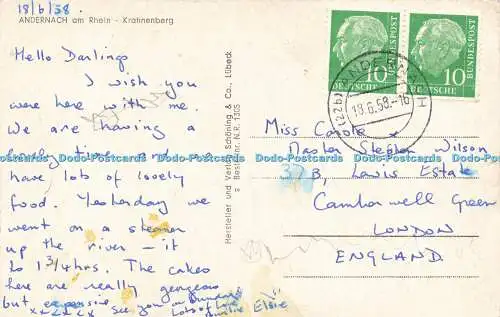 18/6/58.
ANDERNACH am Rhein - Krannenberg
Hello Darlings
I wish you
were here with me.
We are having a
lovely time and
have lots of lovely
food. Yesterday we
went on a steamer
up the river - it
to 1 3/4 hrs. The cakes
here are really gorgeous
but expensive
See you on
Lots of Love
Auntie Elsie
Hersteller und Verlag Schöning & Co., Lübeck
Bestell-Nr. N.R. 1305
10
DEUTSCHE
BUNDESPOST
10
DEUTSCHE
BUNDESPOST
(22b) ANDERNACH
18.6.58.-16
Miss Carole
Master Stephen Wilson
37B, Lewis Estate
Camberwell Green
LONDON
ENGLAND
Dodo-Postcards